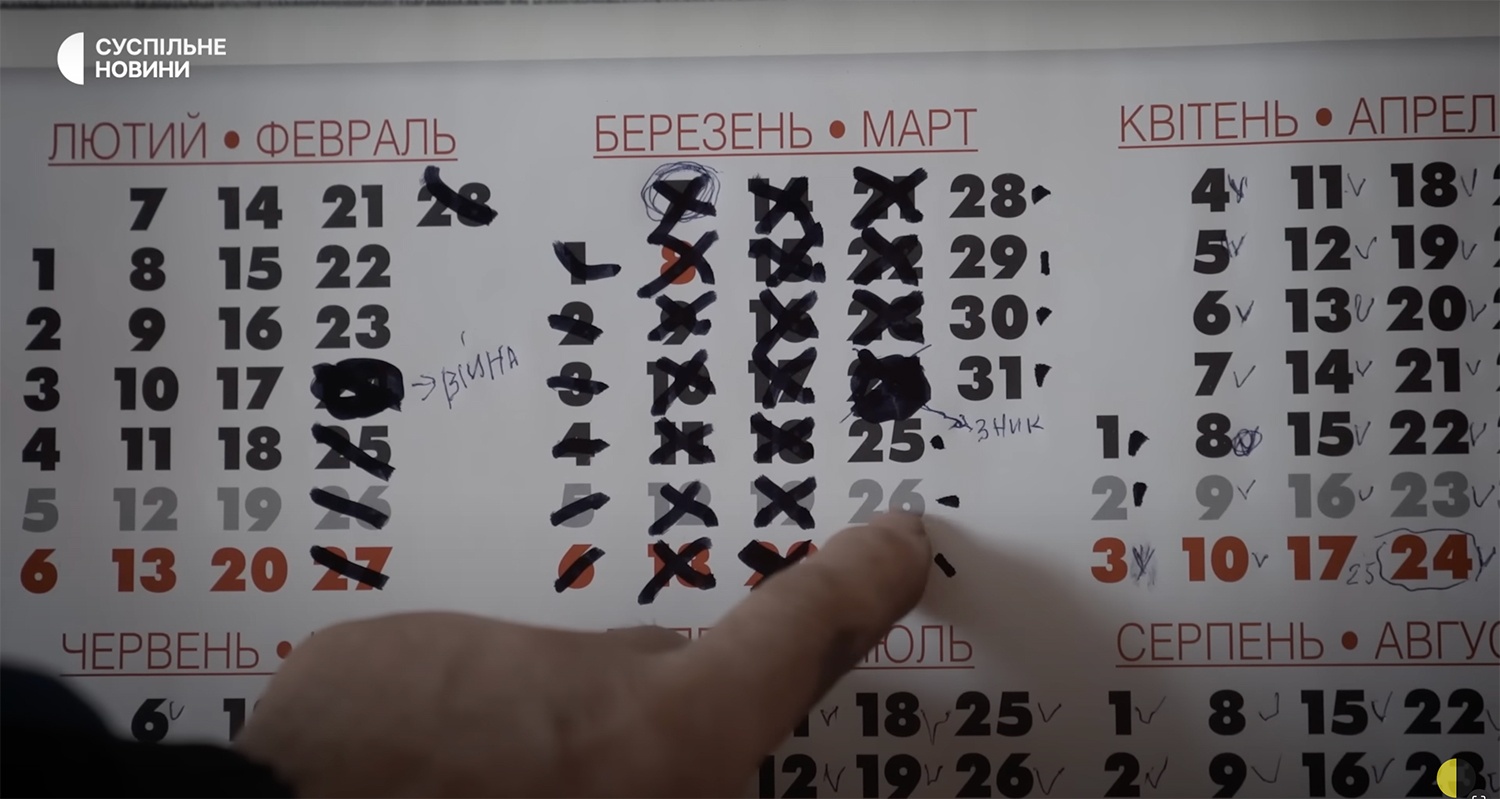 СУСПІЛЬНЕ
НОВИНИ
ЛЮТИЙ • ФЕВРАЛЬ
7 14 21 28
1 8 15 22
2 9 16 23
3 10 17 → ВІЙНА
4 11 18 25
5 12 19 26
6 13 20 27
БЕРЕЗЕНЬ • МАРТ
14 21 28
1 8 15 22 29
2 9 16 23 30
3 10 17 31
ЗНИК
4 11 18 25
5 12 19 26
6 13 20
КВІТЕНЬ • АПРЕЛ
4 11 18
5 12 19
6 13 20
7 14 21
1 8 15 22
2 9 16 23
3 10 17 25 24
ЧЕРВЕНЬ •
6
ЮЛЬ
18 25
12 19 26
СЕРПЕНЬ • АВГУС
1 8 15 22
2 9 16